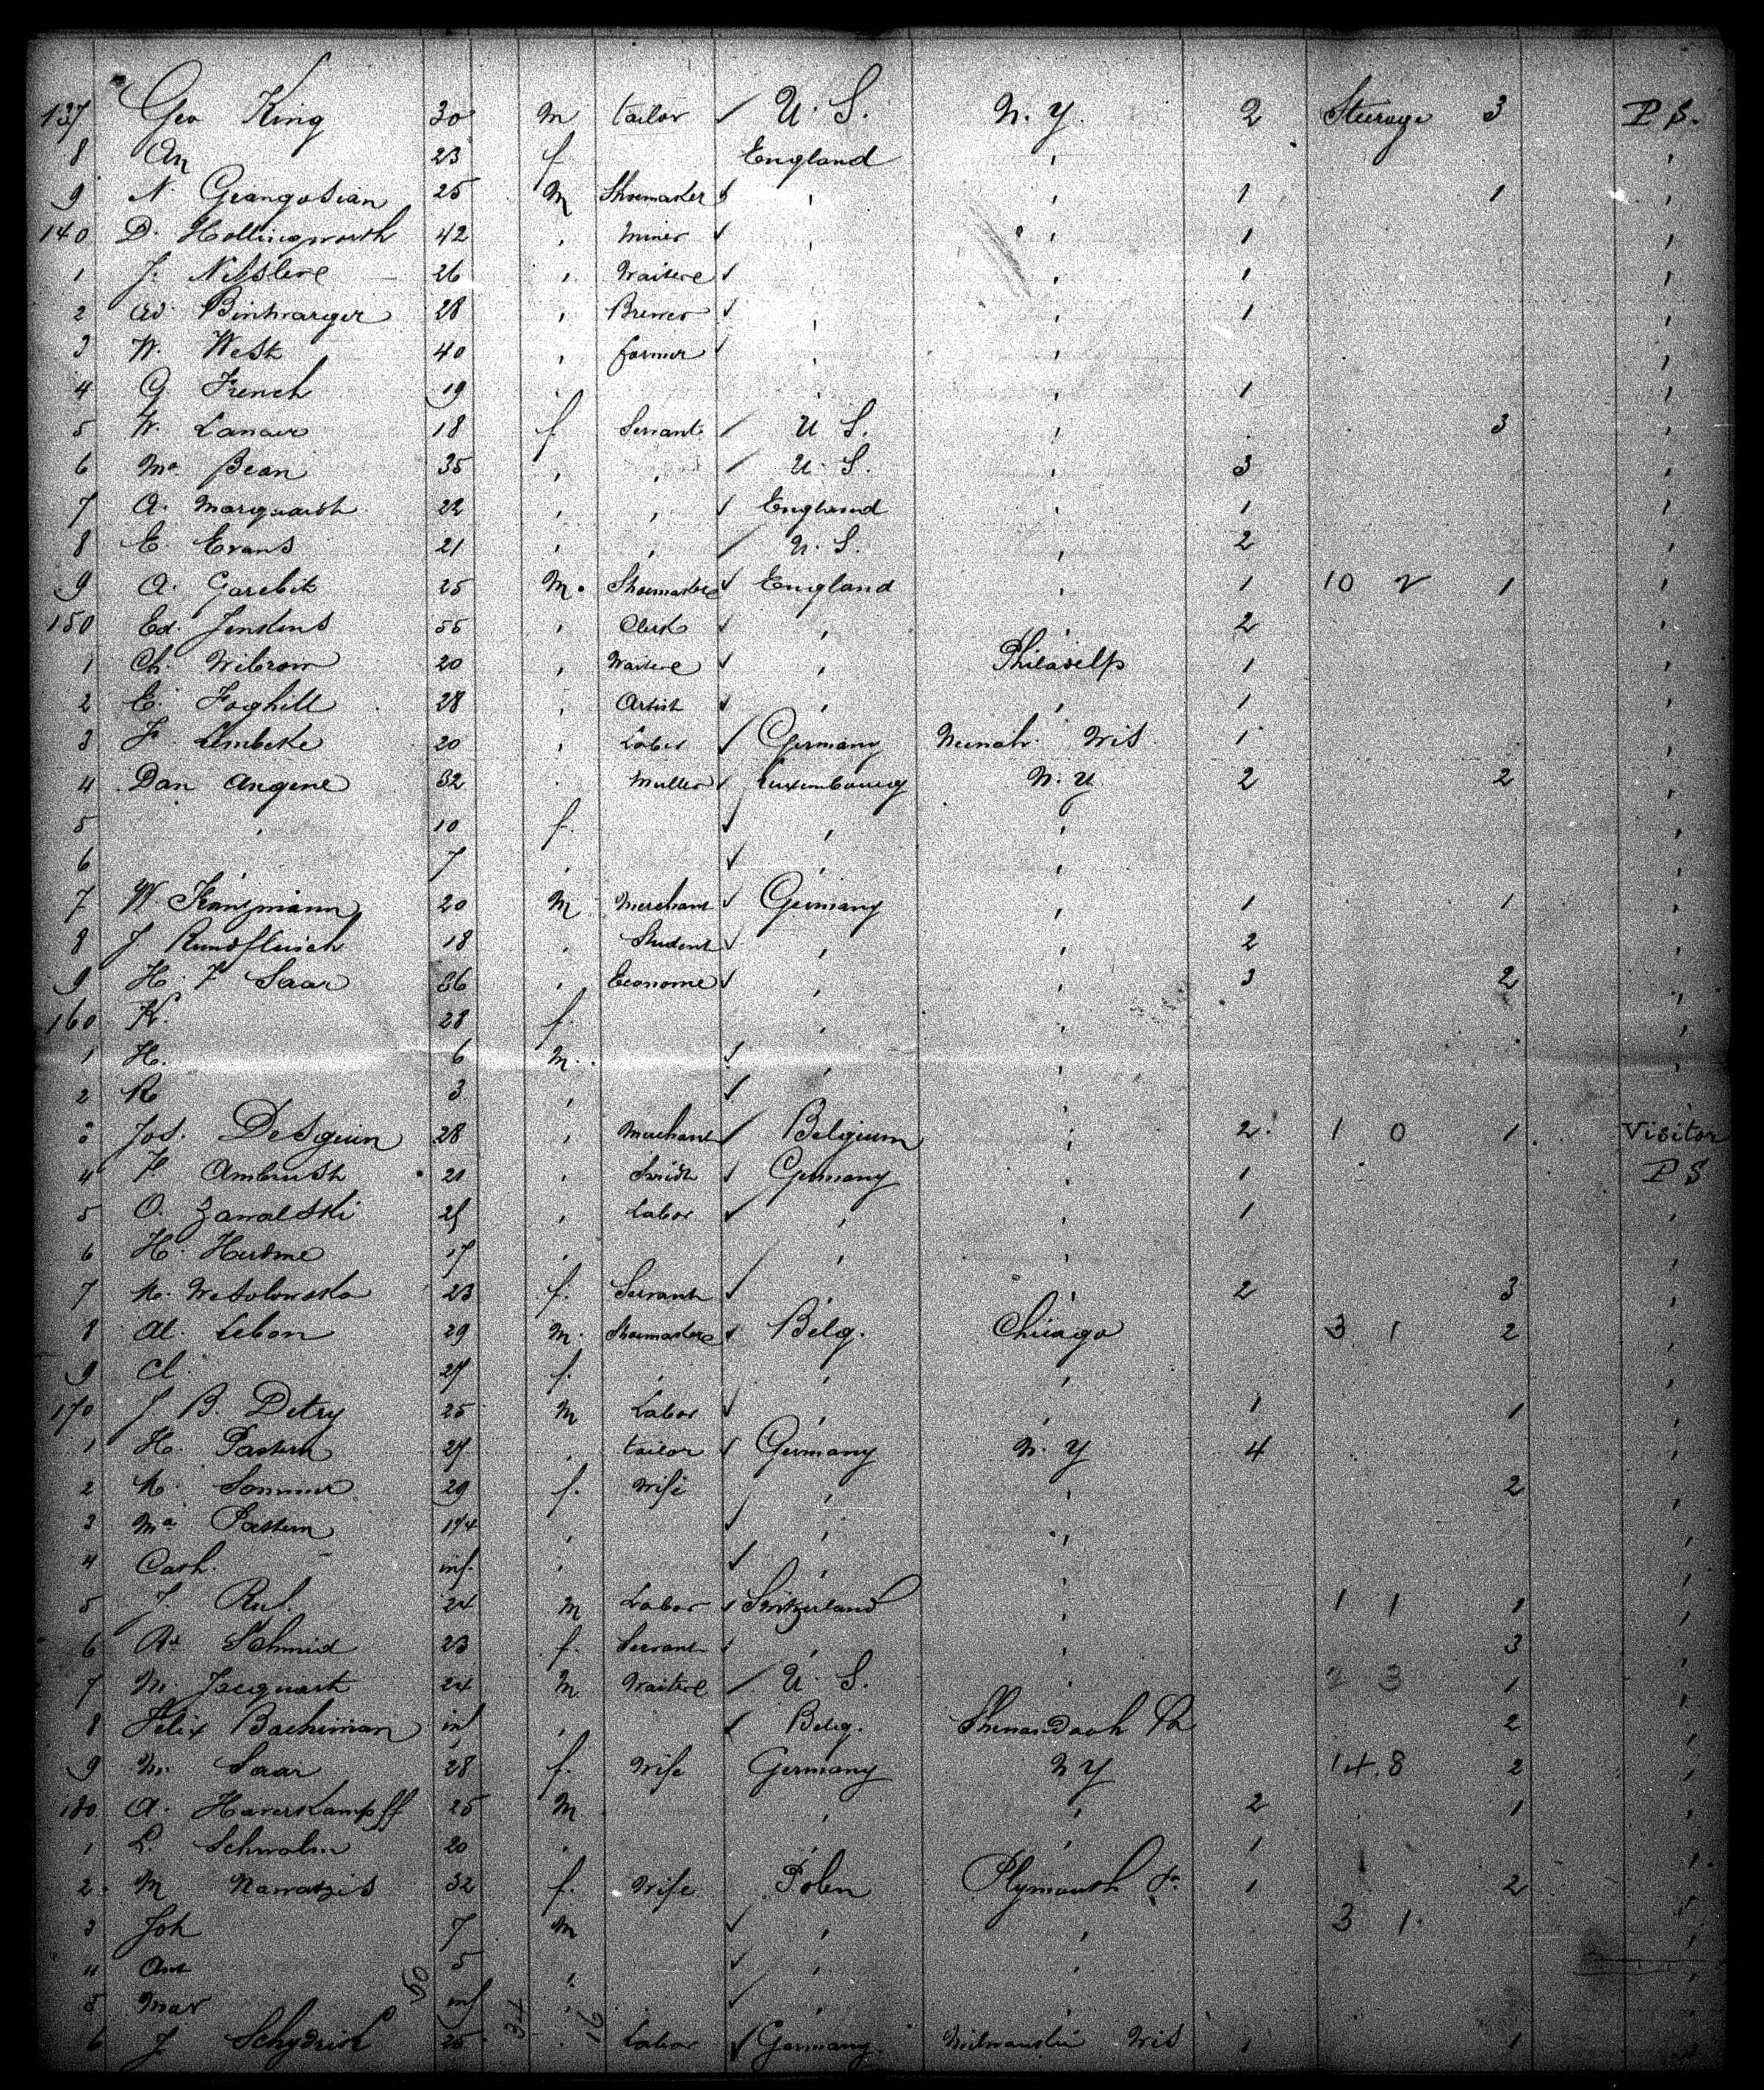 137 Geo King 30 M tailor ✓ U. S. N. Y. 2 Steerage 3 P S.
8 An 23 f England ,
9 N. Geangosian 25 M Shoemaker ✓ , , 1 1 ,
140 D. Hollingworth 42 , Miner ✓ , , 1 ,
1 J. 26 , Waitere ✓ , 1 ,
2 Ad. Binhvarger 28 , Brewer ✓ , , 1 ,
3 W. West 40 , farmer ✓ , , ,
4 G. French 19 , , 1 ,
5 W. Lanaur 18 f Servant ✓ U S. , 3 ,
6 Ma Bean 35 , , ✓ U. S. , 3 ,
7 A. Marquardt 22 , , ✓ England , 1 ,
8 E. Evans 21 , , ✓ U. S. , 2 ,
9 A. Garebit 25 M. Shoemakere ✓ England , 1 10 2 1 ,
150 Ed. Jenkins 55 , Clerk ✓ , , 2 ,
1 Ch. Wibrow 20 , Waitere ✓ , Philadelp 1 ,
2 E. Foghill 28 , Artist ✓ , , 1 ,
3 F. Lembcke 20 , Labor ✓ Germany Neenah. Wis 1 ,
4 Dan Angene 32 , Muller ✓ Luxembourg N. Y 2 2 ,
5 , 10 f. ✓ , , ,
6 , 7 , ✓ , , ,
7 W. Kanzmann 20 M Merchant ✓ Germany , 1 1 ,
8 J Rundfleisch 18 , Student ✓ , , 2 ,
9 H. F Saar 36 , Econome ✓ , , 3 2 ,
160 K. 28 f. , , ,
1 H. 6 M. ✓ , , ,
2 R 3 , ✓ , ,
3 Jos. DeSguin 28 , Merchant ✓ Belgium , 2. 1 0 1. Visitor
4 F. Ambrush 21 , Smidt ✓ Germany , 1 P S
5 O. Zawalski 25 , Labor ✓ , , 1 ,
6 H. Hurdme 17 , , , ,
7 M. Wesolowska 23 f. Servant ✓ , , 2 3 ,
8 Al. Lebon 29 M. Shoemakere ✓ Belg. Chicago 3 1 2 ,
9 Cl. 27 f. , , , ,
170 J B. Detry 25 M Labor ✓ , , 1 1 ,
1 H. Pastern 27 , tailor ✓ Germany N. Y 4 ,
2 M. Sommer 29 f. Wife , , 2 ,
3 Ma Pastern 1 1/4 , ✓ , , ,
4 Cath. inf. , ✓ , , ,
5 J. Rul. 24 M Labor ✓ Switzerland , 1 1 1 ,
6 Ra Schmid 23 f. Servant ✓ , , 3 ,
7 M. Jacquart 24 M Waitere ✓ U. S. , 2 3 1 ,
8 Felix Bachiman inf , ✓ Belg. Shenandoah Pa 2 ,
9 M. Saar 28 f. Wife Germany N Y 14. 8 2 ,
180 A. Haverkampff 25 M , , 2 1 ,
1 L. Schwalm 20 , , , 1 ,
2 M Nawatzis 32 f. Wife Polen Plymouth Pa 1 2 ,
3 Joh 7 M ✓ , , 3 1. ,
4 Ant 5 , ✓ , , ,
5 Mar inf , ✓ , ,
6 J 25 , Labor ✓ Germany. Milwaukie Wis 1 1 ,
50 34 16